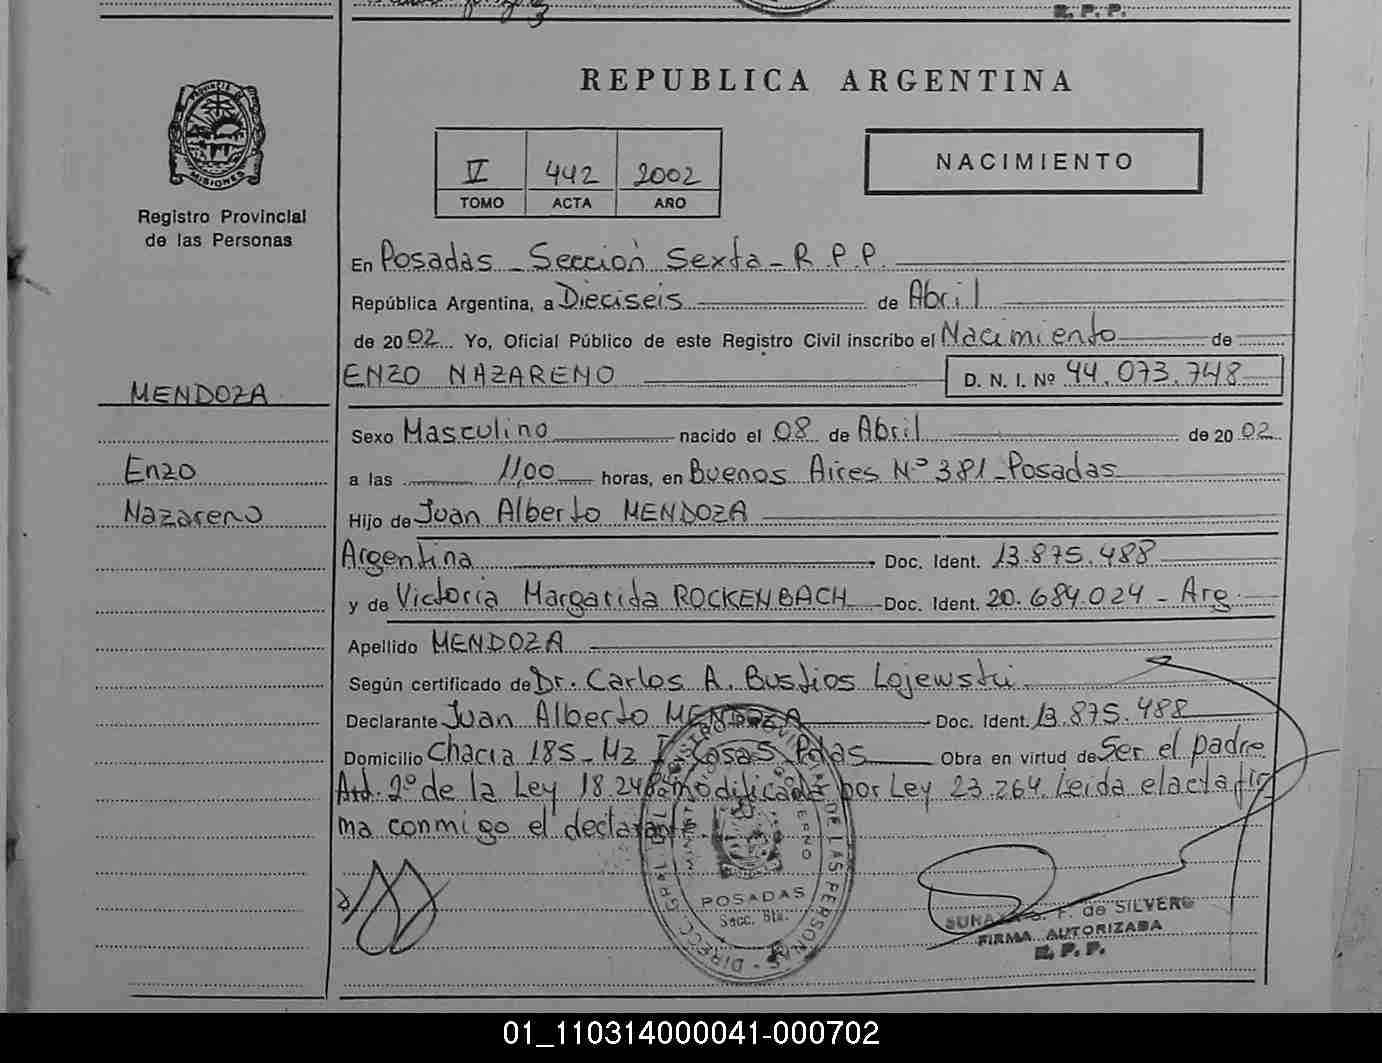 R. P. P.
PROVINCIA DE
MISIONES
Registro Provincial
de las Personas
MENDOZA
Enzo
Nazareno
REPUBLICA ARGENTINA
IV 442 2002
TOMO ACTA AÑO
NACIMIENTO
En Posadas - Sección Sexta - R.P.P.
República Argentina, a Dieciseis de Abril
de 2002 Yo, Oficial Público de este Registro Civil inscribo el Nacimiento de
ENZO NAZARENO D. N. I. Nº 44.073.748
Sexo Masculino nacido el 08 de Abril de 2002
a las 11,00 horas, en Buenos Aires Nº 381 - Posadas
Hijo de Juan Alberto MENDOZA
Argentina Doc. Ident. 13.875.488
y de Victoria Margarita ROCKENBACH Doc. Ident. 20.684.024 - Arg.
Apellido MENDOZA
Según certificado de Dr. Carlos A. Bustios Lojewski
Declarante Juan Alberto MENDOZA Doc. Ident. 13.875.488
Domicilio Chacra 185 - Mz I Casas Pdas Obra en virtud de Ser el padre
Art. 2º de la Ley 18.248 modificada por Ley 23.264. Leida el acta fir
ma conmigo el declarante.
DIRECC. GRAL. DEL REGISTRO PROVINCIAL DE LAS PERSONAS
POSADAS
Secc. 6ta.
F. de SILVERO
FIRMA AUTORIZADA
R. P. P.
01_110314000041-000702